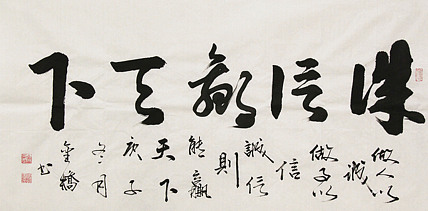 诚信贏天下
做人以
誠
做事以
信
誠信
則
能贏
天下
庚子
冬月
书